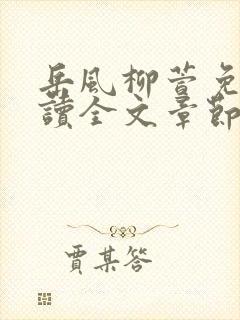 岳風柳萱免
讀全文章節
賈某答